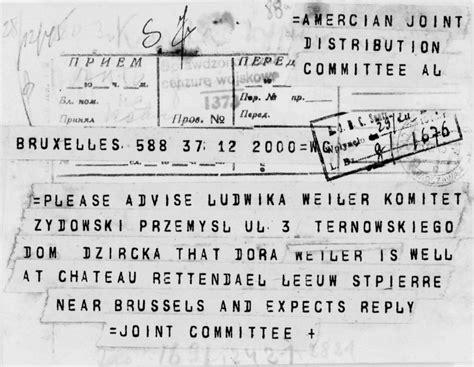 =AMERCIAN JOINT
DISTRIBUTION
COMMITTEE AL
ПРИЕМ
ПЕРЕД
Бл. ном.
Принял
Пров. №
Пер. №
Передал
cenzurę wojskową
1373
1676
BRUXELLES 588 37 12 2000=
=PLEASE ADVISE LUDWIKA WEILER KOMITET
ZYDOWSKI PRZEMYSL UL 3 TERNOWSKIEGO
DOM DZIRCKA THAT DORA WEILER IS WELL
AT CHATEAU RETTENDAEL LEEUW STPIERRE
NEAR BRUSSELS AND EXPECTS REPLY
=JOINT COMMITTEE +